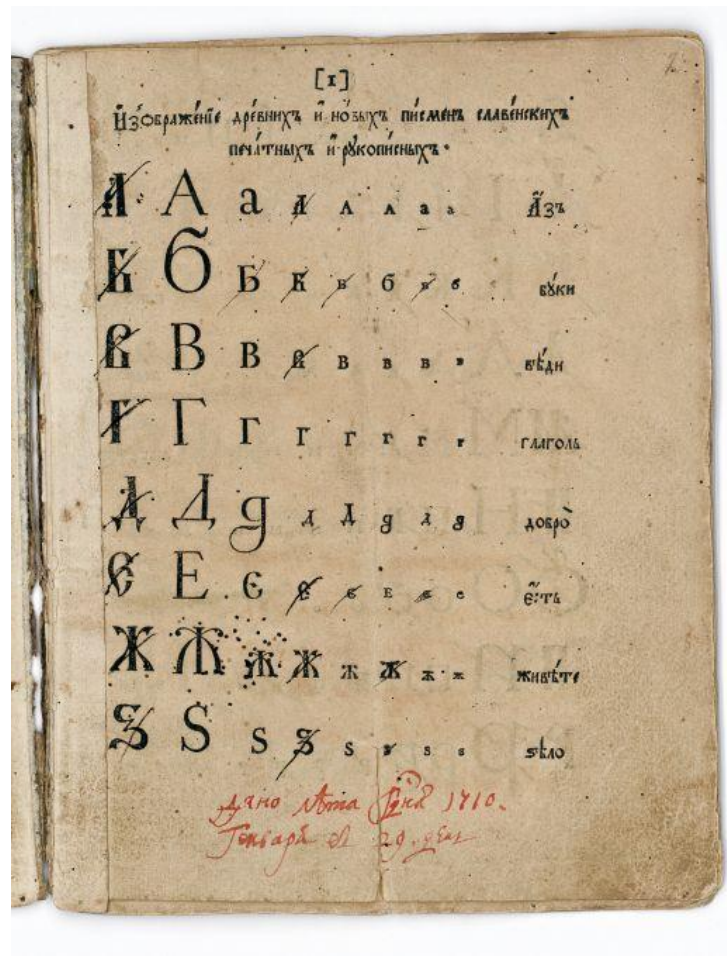 [1]
И҆зображе́нїе дре́внихъ и҆ но́выхъ пи́сменъ славе́нскихъ
печа́тныхъ и҆ рꙋкопи́сныхъ.
А А а А А А а а А҆́зъ
Б Б Б Б Б Б Б Б бꙋ́ки
В В В В В В В В вѣ́ди
Г Г Г Г Г Г Г Г глаго́ль
Д Д д Д Д д Д д добро̀
Є Е Є Є Є Е Є Є є҆́сть
Ж Ж Ж Ж Ж Ж Ж Ж живѣ́те
Ѕ Ѕ Ѕ Ѕ Ѕ Ѕ Ѕ Ѕ ѕѣло̀
дано лѣта 1710.
Генваря 29. день